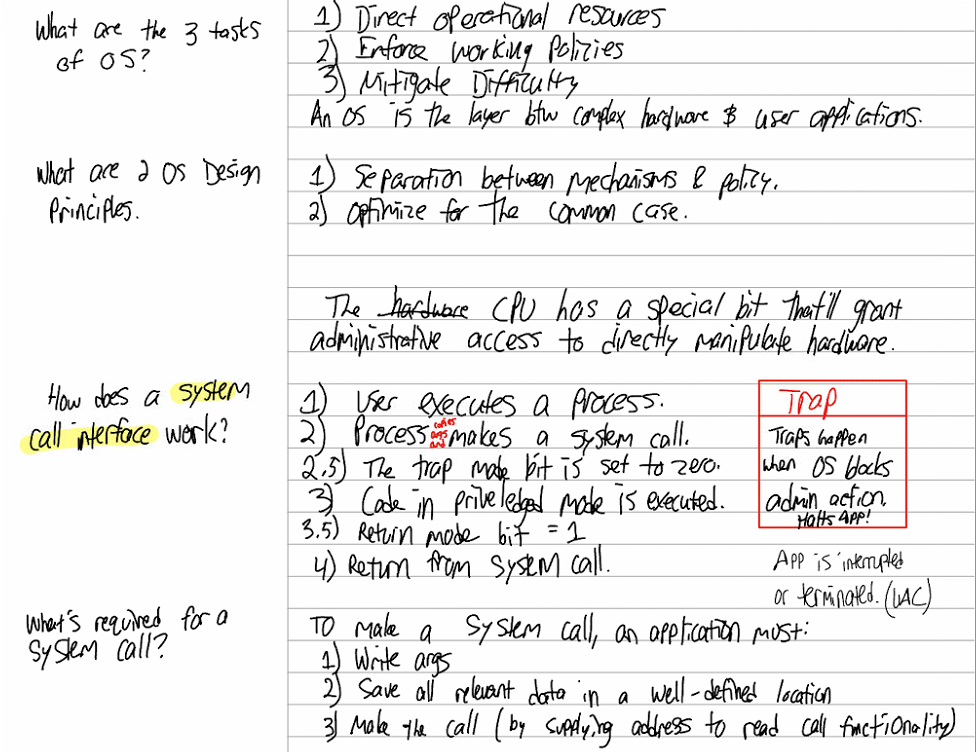 What are the 3 tasks
of OS?
1) Direct operational resources
2) Enforce working Polities
3) Mitigate Difficulty
An OS is the layer btw complex hardware & user applications.
What are 2 OS Design
Principles.
1) Separation between Mechanisms & policy.
2) optimize for the common case.
The hardware CPU has a special bit that'll grant
administrative access to directly manipulate hardware.
How does a system
call interface work?
1) User executes a Process.
2) Process copies args and makes a system call.
2.5) The trap mode bit is set to zero.
3) Code in priveledged mode is executed.
3.5) Return mode bit = 1
4) Return from system call.
Trap
Traps happen
when OS blocks
admin action.
Halts App!
App is interrupted
or terminated. (UAC)
What's required for a
System call?
To make a System call, an application must:
1) Write args
2) Save all relevant data in a well-defined location
3) Make the call (by supplying address to read call functionality)